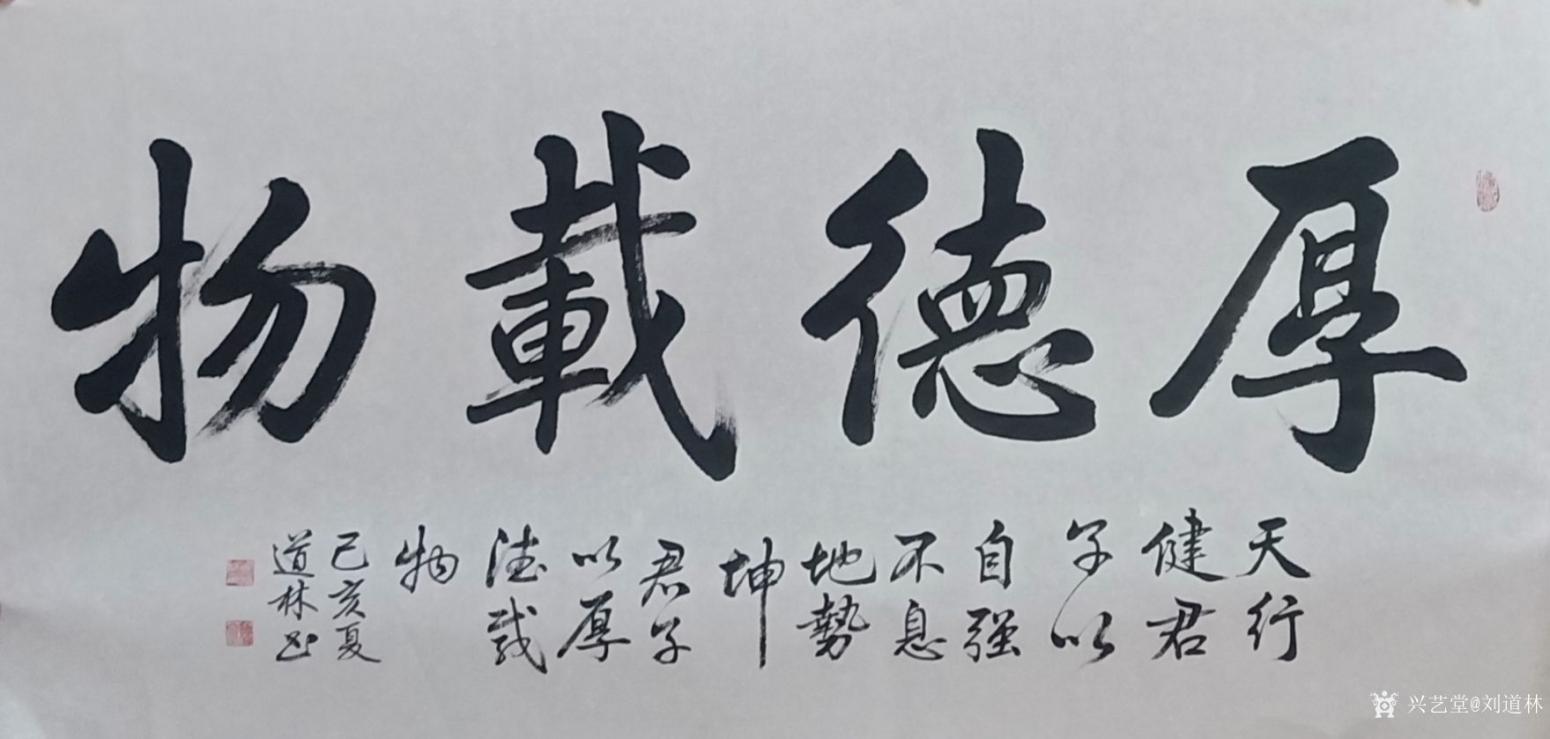 厚德載物
天行
健君
子以
自强
不息
地勢
坤
君子
以厚
德载
物
己亥夏
道林书
兴艺堂@刘道林